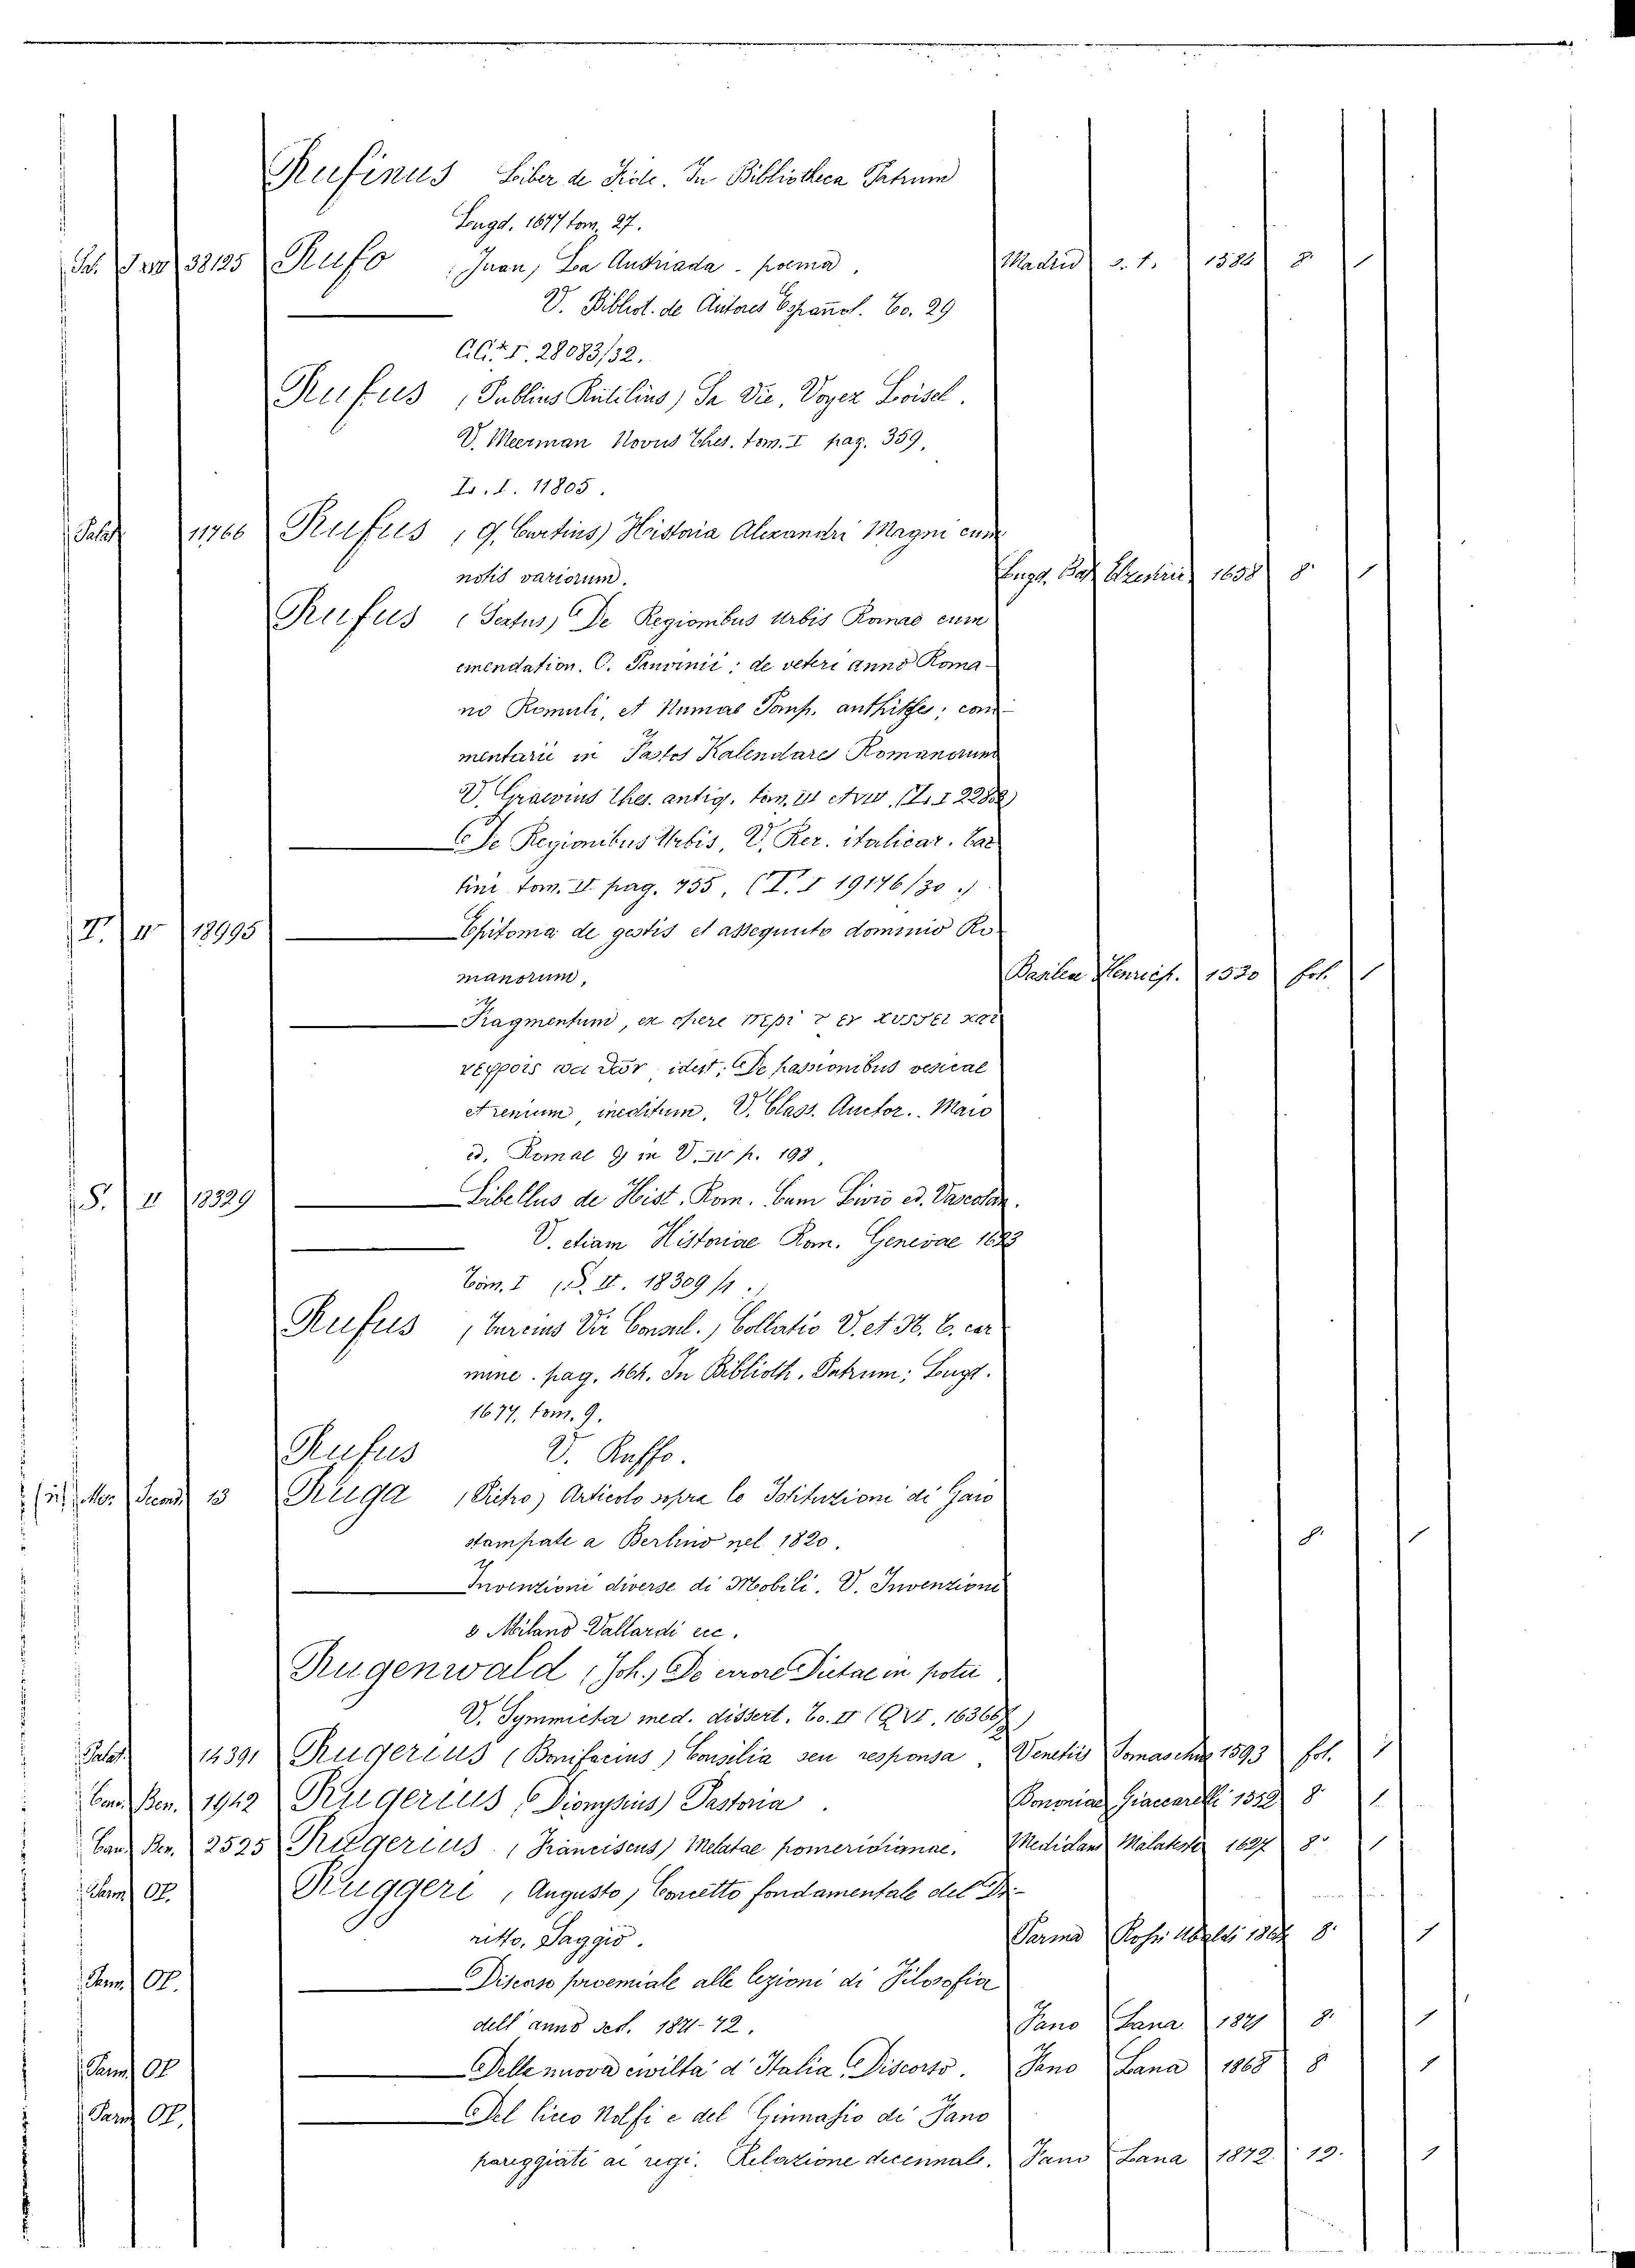 Rufinus Liber de Fide. In Bibliotheca Patrum
Lugd. 1677 tom. 27.
38125 Rufo (Juan) La Austriada - poema. Madrid s. t. 8 1
V. Bibliot. de Autores Español. To. 29
I. 28083/32.
Rufus (Publius Rutilius) Sa Vie, Voyez Loisel.
V. Meerman Novus Thes. tom. I pag. 359.
I. 11805.
Palat 11766 Rufus (Q. Curtius) Historia Alexandri Magni cum
notis variorum. Lugd. Bat. 1658 8 1
Rufus (Sextus) De Regionibus Urbis Romae cum
emendation. O. Panvinii; de veteri anno Roma-
no Romuli, et Numae Pomp. com-
mentarii in Fastos Kalendares Romanorum
V. Graevius Thes. antiq. tom. III
De Regionibus Urbis, V. Rer. italicar.
tini tom. II. pag. 755, (T. I 19176/30.)
T. II 18995 Epitoma de gestis et assequuto dominio Ro-
manorum, Basilea Henricp. 1530 fol. 1
Fragmentum, ex opere περι
idest; De passionibus vesicae
et renium, ineditum, V. Class. Auctor. Maio
ed. Romae p. 198,
S. II 18329 Libellus de Hist. Rom. Cum Livio ed. Vascosan.
V. etiam Historiae Rom. Genevae 1623
Tom. I (S. II. 18309/1.)
Rufus (Turcius Vir Consul.) Collatio V. et N. T. car
mine. pag. 464. In Biblioth. Patrum; Lugd.
1677, tom. 9.
Rufus V. Ruffo.
13 Ruga (Pietro) Articolo sopra le Istituzioni di Gaio
stampate a Berlino nel 1820. 8. 1
Invenzioni diverse di Mobili. V. Invenzioni
8 Milano Vallardi ecc.
Rugenwald (Joh.) De errore Dietae in potu
V. Symmicta med. dissert. To. II (Q VI. 16366/7)
Palat. 14391 Rugerius (Bonifacius) Consilia seu responsa. Venetiis Somaschus 1593 fol. 1
Cam. Ben. 1942 Rugerius (Dionysius) Pastoria. Bononiae Giaccarelli 1552 8 1
Cam. Ben. 2525 Rugerius (Franciscus) Meletae pomeridianae. Mediolani Malatesta 1697 8° 1
Parm. OP. Ruggeri (Augusto) Concetto fondamentale del Di-
ritto, Saggio. Parma 8. 1
Parm. OP. Discorso proemiale alle lezioni di Filosofia
dell'anno scol. 1871-72. Fano Lana 1871 8. 1
Parm. OP. Della nuova civiltà d'Italia, Discorso. Fano Lana 1868 8 1
Parm. OP. Del liceo Nolfi e del Ginnasio di Fano
pareggiati ai regi. Relazione decennale. Fano Lana 1872. 12. 1